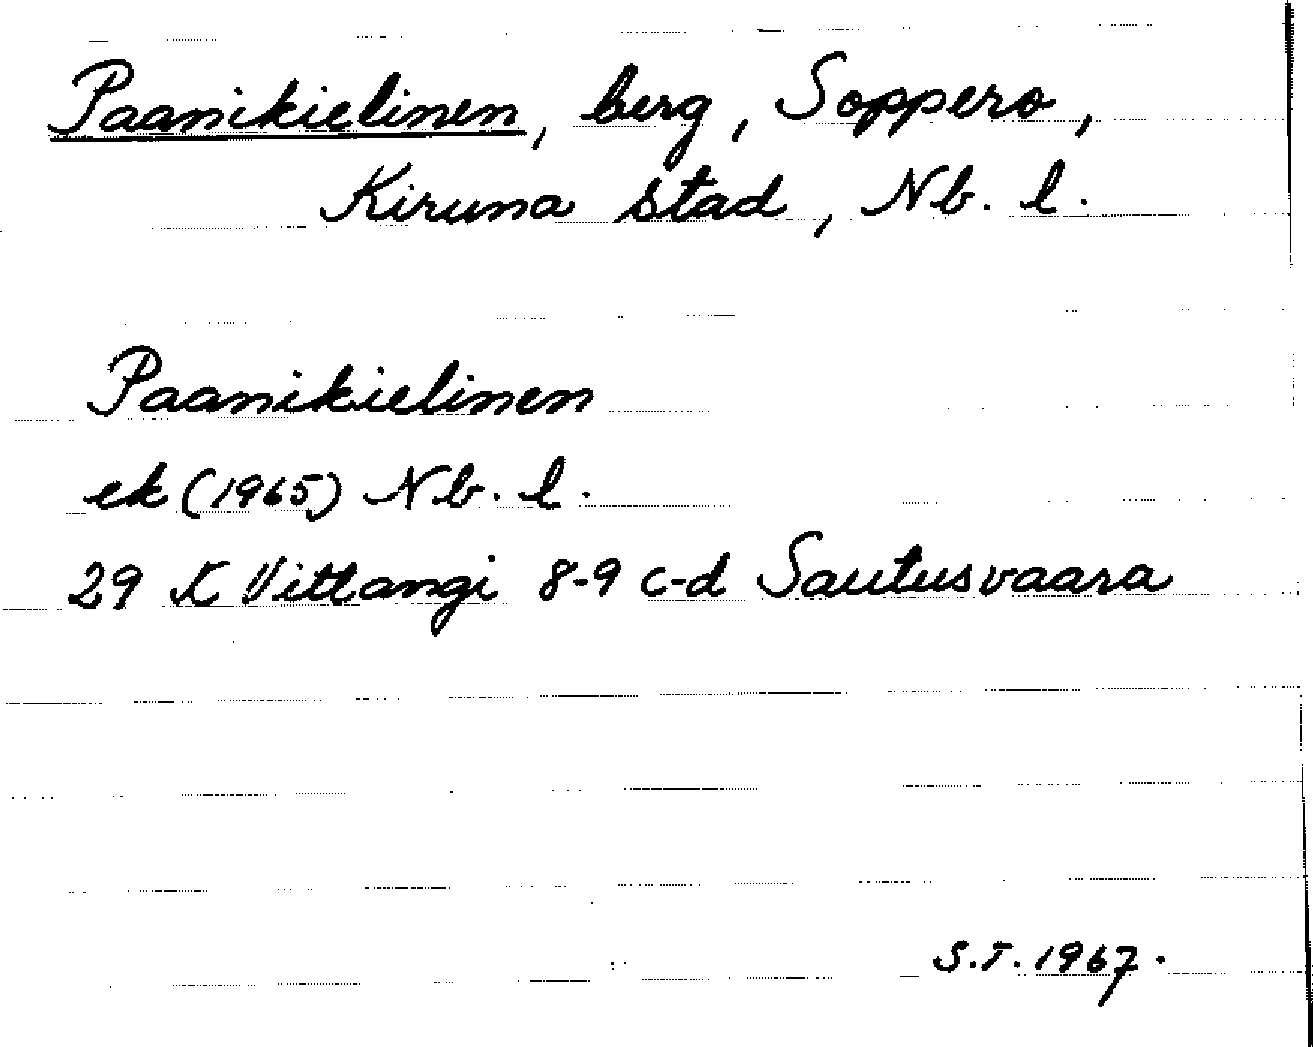 Paanikielinen, berg, Soppero,
Kiruna stad, Nb. l.
Paanikielinen
ek (1965) Nb. l.
29 K Vittangi 8-9 c-d Sautusvaara
S.T. 1967.